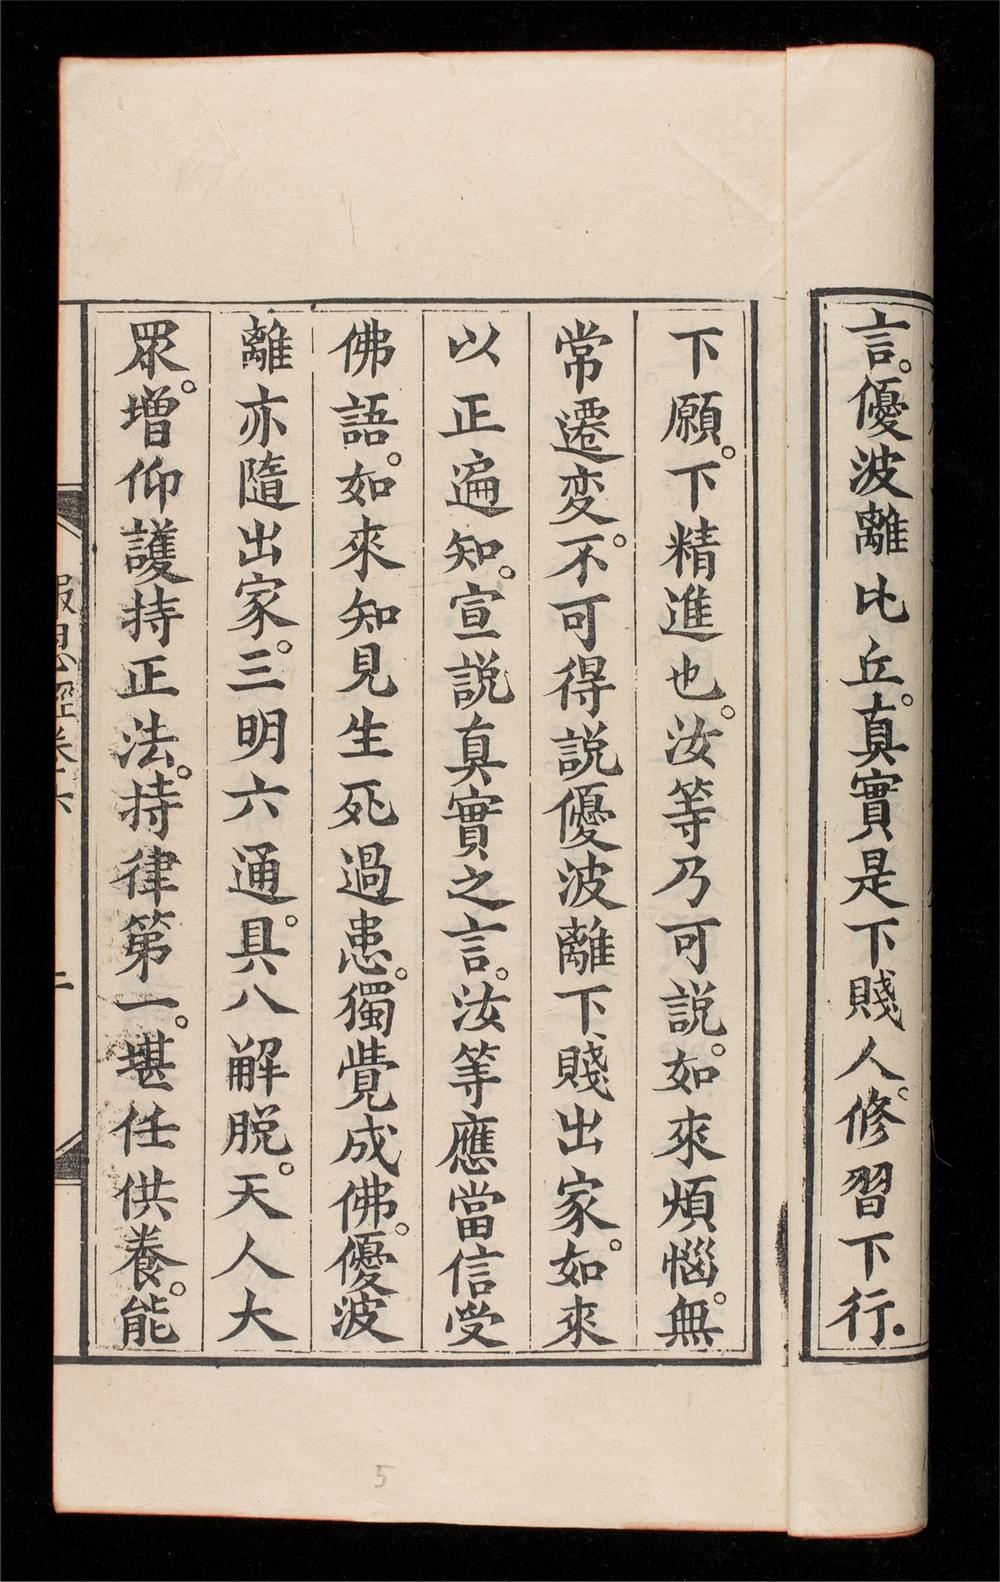 言。優波離比丘。真實是下賤人。修習下行.
下願。下精進也。汝等乃可說。如來煩惱。無
常遷变。不可得說優波離下賤出家。如來
以正遍知。宣說真實之言。汝等應當信受
佛語。如來知見生死過患。獨覺成佛。優波
離亦隨出家。三明六通。具八解脫。天人大
眾。增仰護持正法。持律第一。堪任供養。能
報恩經卷六
5